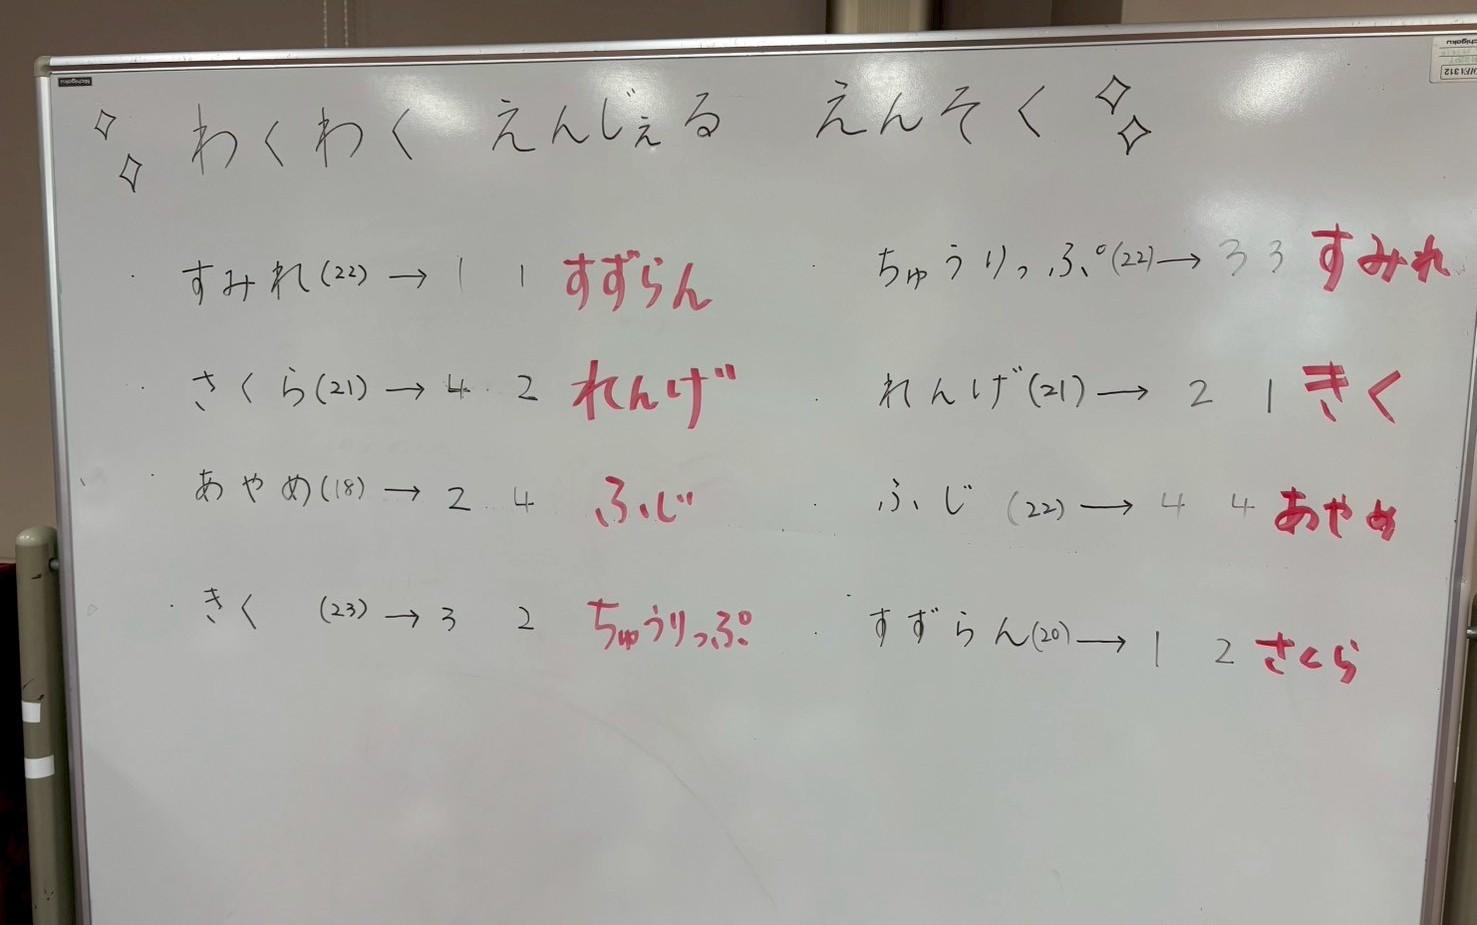 わくわく えんじぇる えんそく
・すみれ(22)→ 1 1 すずらん
・さくら(21)→ 4 2 れんげ
・あやめ(18)→ 2 4 ふじ
・きく (23)→ 3 2 ちゅうりっぷ
・ちゅうりっぷ(22)→ 3 3 すみれ
・れんげ(21)→ 2 1 きく
・ふじ (22)→ 4 4 あやめ
・すずらん(20)→ 1 2 さくら
Nichigaku